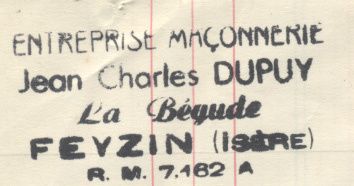 ENTREPRISE MAÇONNERIE
Jean Charles DUPUY
La Bégude
FEYZIN (ISÈRE)
R. M. 7.162 A